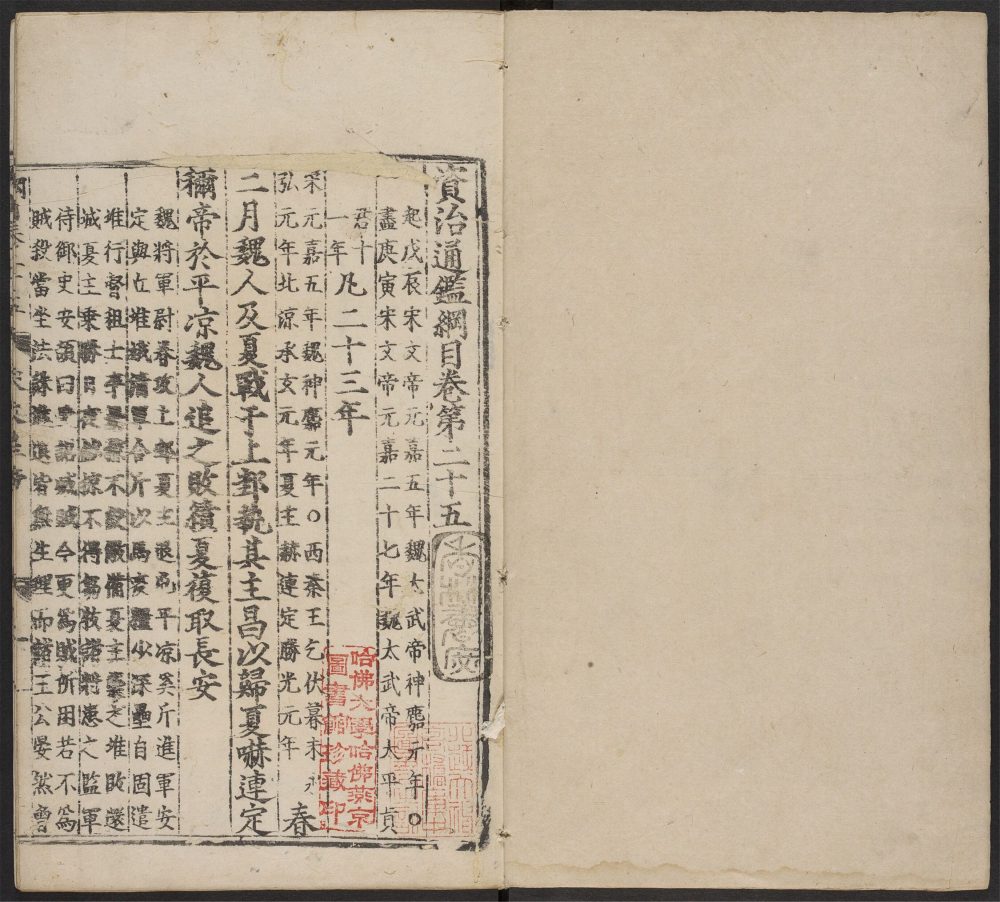 資治通鑑綱目卷第二十五
起戊辰宋文帝元嘉五年魏太武帝神䴥元年○
盡庚寅宋文帝元嘉二十七年魏太武帝太平眞
君十
一年
凡二十三年
宋元嘉五年魏神䴥元年○西秦王乞伏暮末永
弘元年北涼承玄元年夏主赫連定勝光元年
春
二月魏人及夏戰于上邽執其主昌以歸夏嚇連定
稱帝於平凉魏人追之敗績夏復取長安
魏將軍尉眷攻上邽夏主退屯平凉奚斤進軍安
定與丘堆娥清軍合斤以馬疫糧少深壘自固遣
堆行督租士卒暴掠不設儆備夏主襲之堆敗還
城夏主乗勝日夜鈔掠不得芻牧諸將患之監軍
侍御史安頡曰受詔滅賊今更爲賊所
用若不爲
賊殺當坐法誅進退皆無生理而諸王公晏然曾
哈佛大學哈佛燕京
圖書館珍藏印